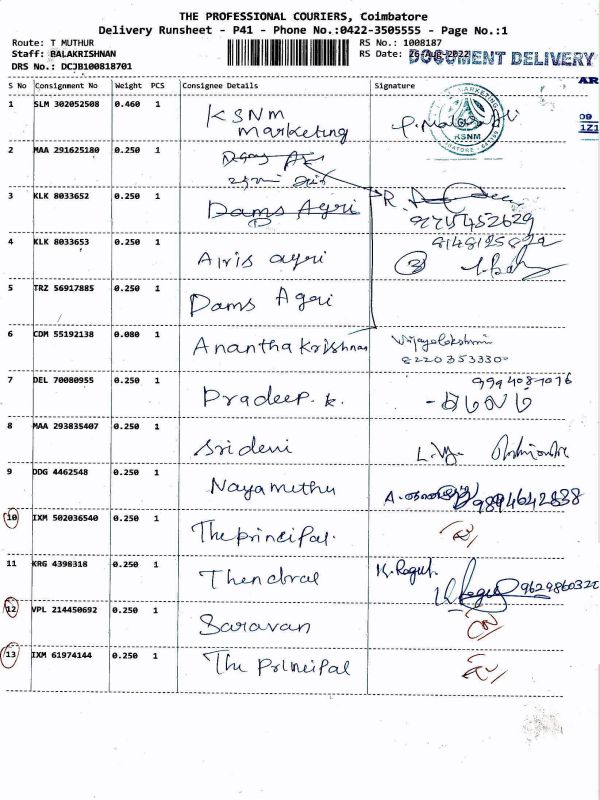 THE PROFESSIONAL COURIERS, Coimbatore
Delivery Runsheet - P41 - Phone No.:0422-3505555 - Page No.:1
Route: T MUTHUR
RS No.: 1008187
Staff: BALAKRISHNAN
RS Date: 26-Aug-2022
DOCUMENT DELIVERY
DRS No.: DCJB100818701
AR
S No Consignment No Weight PCS Consignee Details Signature
1 SLM 302052508 0.460 1 KSNM marketing
KSNM
09
1Z1
2 MAA 291625180 0.250 1
3 KLK 8033652 0.250 1 Dams Agri R
4 KLK 8033653 0.250 1 Airis agri
5 TRZ 56917885 0.250 1 Dams Agri
6 CDM 55192138 0.080 1 Anantha Krishnan Vijayalakshmi
8220353330
7 DEL 70080955 0.250 1 Pradeep. k.
8 MAA 293835407 0.250 1 Sridevi
9 DDG 4462548 0.250 1 Nayamuthu 9894642838
10 IXM 502036540 0.250 1 The principal.
11 KRG 4398318 0.250 1 Thendral K. Ragul
12 VPL 214450692 0.250 1 Saravan
13 IXM 61974144 0.250 1 The Principal